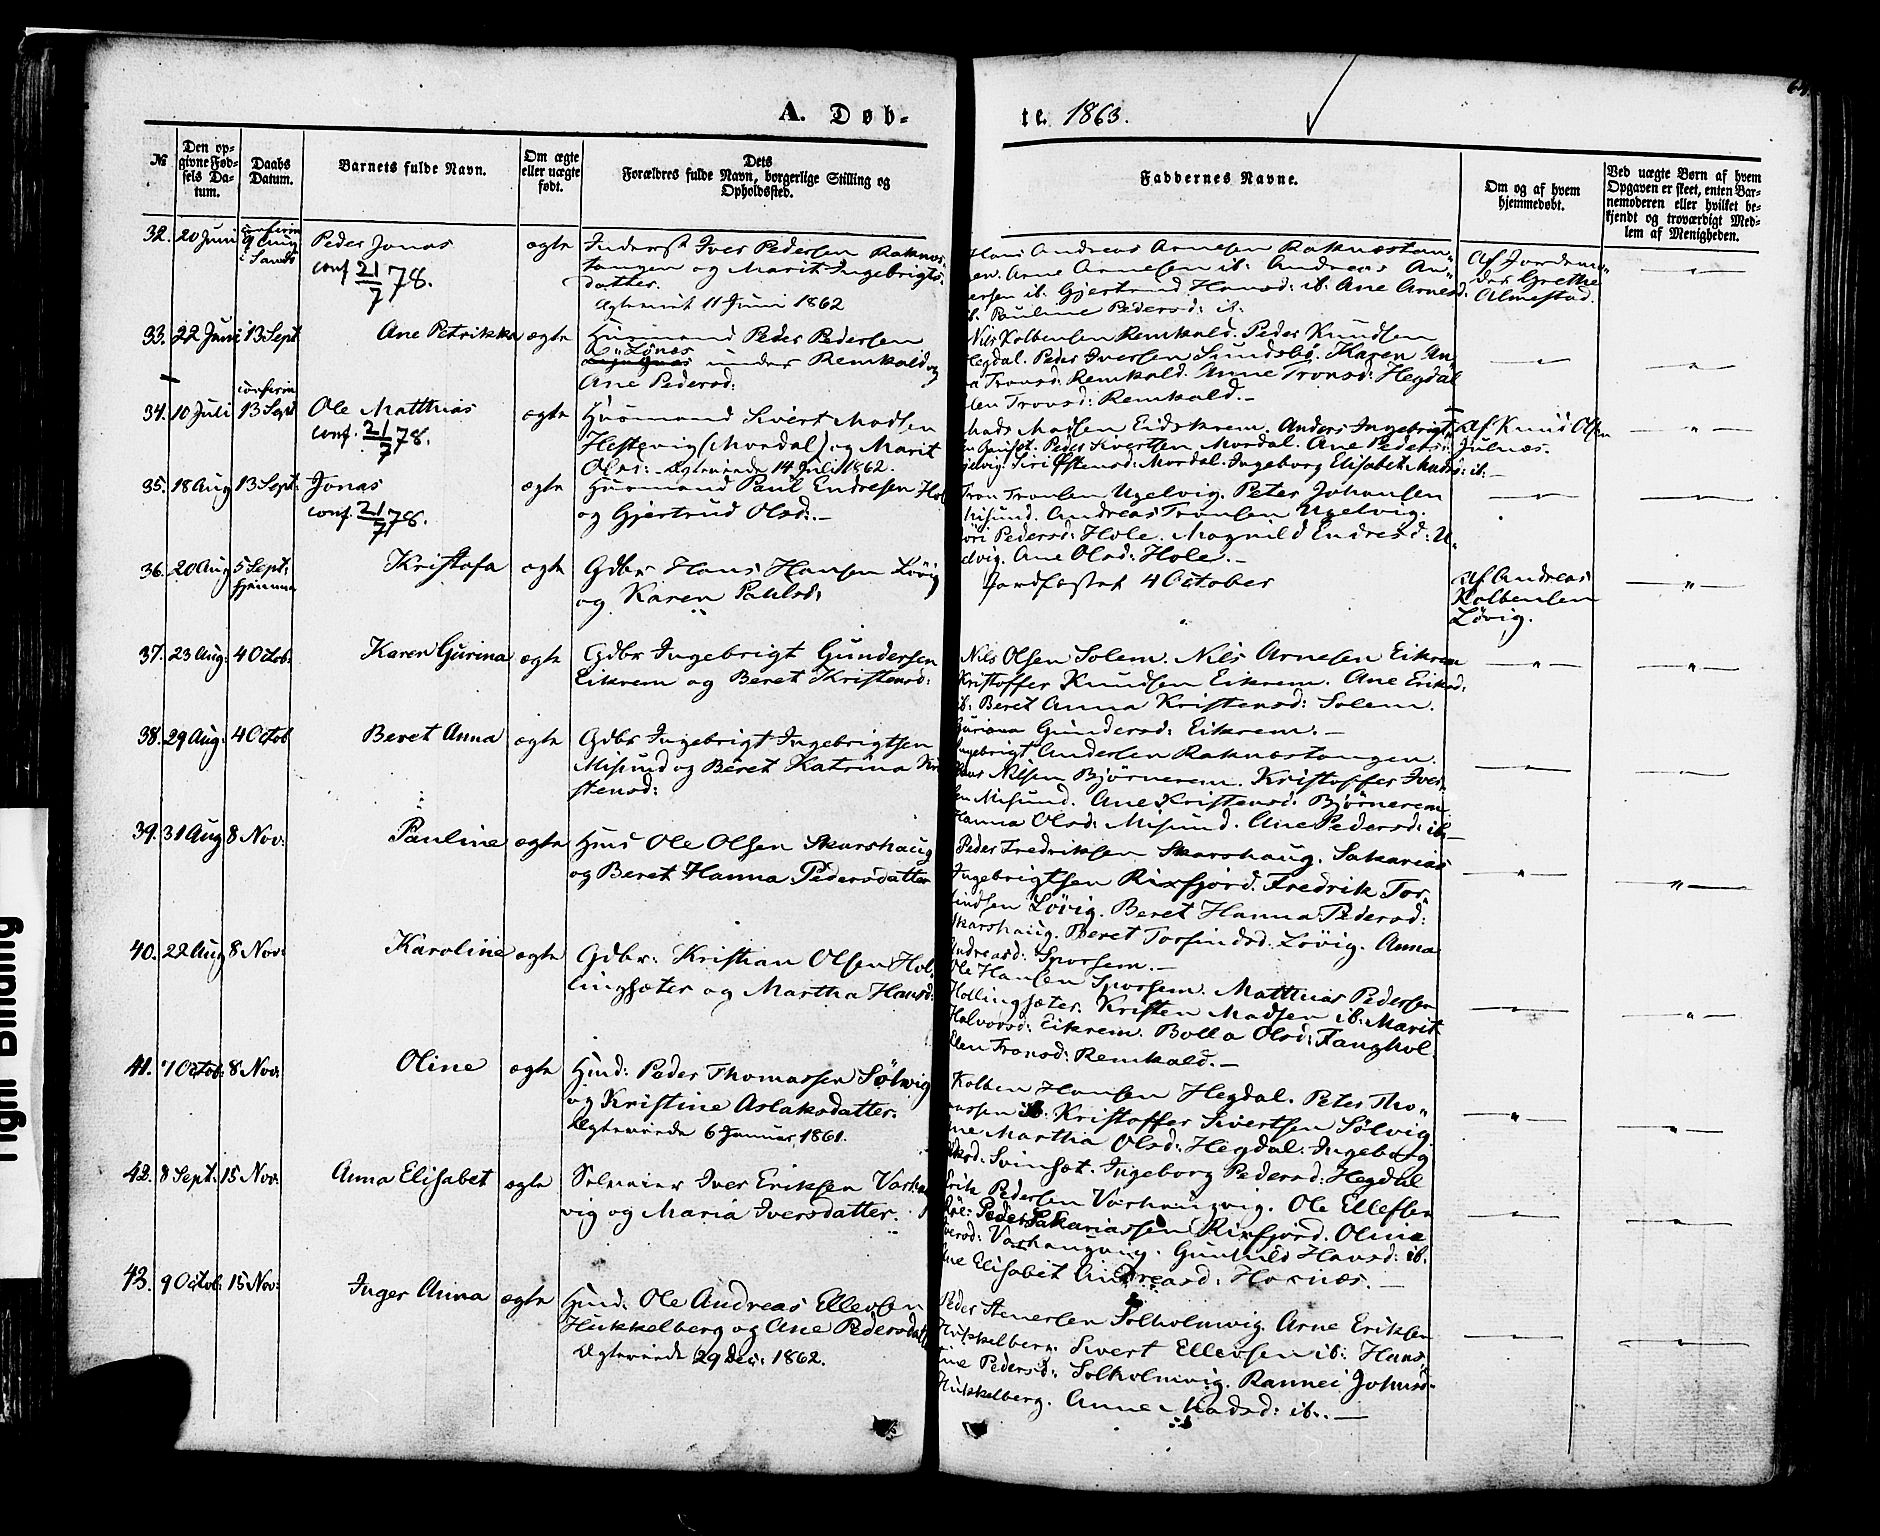 A. Døb-
te. 1863.
№
Den op-
givne Fød-
sels Da-
tum.
Daabs
Datum.
Barnets fulde Navn.
Om ægte
eller uægte
født.
Dets
Forældres fulde Navn, borgerlige Stilling og
Opholdssted.
Faddernes Navne.
Om og af hvem
hjemmedøbt.
Ved uægte Børn af hvem
Opgaven er skeet, enten Bar-
nemoderen eller hvilket be-
kjendt og troværdigt Med-
lem af Menigheden.
32. 20 Juni
confirm
9 Aug
i Sands
Peder Jonas
conf 21/7 78.
ægte
Inderst Iver Pedersen Raknes-
tangen og Marit Ingebrigts-
datter.
Ægteviet 11 Juni 1862
Hans Andreas Arnesen Raknestan-
gen. Arne Arnesen ib: Andreas An-
dersen ib. Gjertrud Hansd: ib. Ane Arnesd:
ib. Pauline Pedersd: ib.
Af Jordemo-
der Grethe
Almestad.
33. 22 Juni 13 Sept
Ane Petrikka
ægte
Husmand Peder Pedersen
Lønæs
under Remkald og
Ane Pedersd:
Nils Kolbensen Remkald. Peder Knudsen
Hegdal. Peder Iversen Sundsbø. Karen An-
na Tronsd: Remkald. Anne Tronsd: Hegdal
Elen Tronsd: Remkald.-
34. 10 Juli
confirm
13 Sept
Ole Matthias
conf. 21/7 78.
ægte
Husmand Sivert Madsen
Hestevig (Mordal) og Marit
Olsd: - Ægteviede 14 Juli 1862.
Mads Madsen Eidskrem. Anders Ingebrigt-
Peder Sivertsen Mordal. Ane Pedersd:
Siri Østensd: Mordal. Ingeborg Elisabet Madsd: ib.-
Af Knud Olsen
Julnæs.
35. 18 Aug 13 Sept:
Jonas
conf. 21/7 78.
ægte
Husmand Paul Endresen Hol
og Gjertrud Olsd:-
Tron Tronsen Ugelvig. Peter Johansen
Misund. Andreas Tronsen Ugelvig.
Pedersd: Hole. Magnild Endresd: U-
gelvig. Ane Olsd: Hole.-
36. 20 Aug 5 Sept:
hjemme
Kristofa
ægte
Gdbr Hans Hansen Løvig
og Karen Paulsd:
Jordfæstet 4 October
Af Andreas
Kolbensen
Løvig.
37. 23 Aug: 4 Octob:
Karen Gurina
ægte
Gdbr Ingebrigt Gundersen
Eikrem og Beret Kristensd:
Nils Olsen Solem. Nils Arnesen Eikrem
Kristoffer Knudsen Eikrem. Ane Eriksd:
ib. Beret Anna Kristensd: Solem.
Guriana Gundersd: Eikrem.-
38. 29 Aug: 4 Octob
Beret Anna
ægte
Gdbr Ingebrigt Ingebrigtsen
Misund og Beret Katrina Kri-
stensd:
Ingebrigt Andersen Raknestangen.
Hans Nilsen Bjørnerem. Kristoffer Iver-
sen Misund. Ane Kristensd: Bjørnerem
Hanna Olsd: Misund. Ane Pedersd: ib-
39. 31 Aug 8 Nov:
Pauline
ægte
Huus Ole Olsen Skarshaug
og Beret Hanna Pedersdatter
Peder Fredriksen Skarshaug. Sakarias
Ingebrigtsen Rixfjord. Fredrik Tor-
findsen Løvig. Beret Hanna Pedersd:
Skarshaug. Beret Torfindsd. Løvig. Anna
Andreasd: Sporsem.-
40. 22 Aug 8 Nov:
Karoline
ægte
Gdbr: Kristian Olsen Hol-
lingsæter og Martha Hansd:
Ole Hansen Sporsem. Matthias Pedersen
Hollingsæter. Kristen Madsen ib: Marit
Halvorsd: Eikrem. Bolla Olsd: Tanghol.
Elen Tronsd: Remkald.-
41. 7 Octob: 8 Nov:
Oline
ægte
Hmd: Peder Thomassen Sølvig
og Kristine Aslaksdatter.
Ægteviede 6 Januar 1861.
Kolben Hansen Hegdal. Peter Tho-
massen ib: Kristoffer Sivertsen Sølvig.
Ane Martha Olsd: Hegdal. Ingeborg
Eriksd: Svinsæt. Ingeborg Pedersd: Hegdal
42. 8 Sept: 15 Nov:
Anna Elisabet
ægte
Selveier Iver Eriksen Varhaug-
vig og Maria Iversdatter.
Erik Pedersen Varhaugvig. Ole Ellefsen
Peder Sakariassen Rixfjord. Oline
Iversd: Varhaugvig. Gunhild Hansd: ib.
Ane Elisabet Andreasd: Hornæs.-
43. 9 Octob: 15 Nov:
Inger Anna
ægte
Hmd: Ole Andreas Ellevsen
Hukkelberg og Ane Pedersdatt
Ægteviede 29 Dec: 1862.
Peder Stenersen Solholmvig. Arne Eriksen
Hukkelberg. Sivert Ellevsen ib: Hans
Ane Pedersd: Solholmvig. Rannei Johnsd-
Hukkelberg. Anne Madsd: ib.-